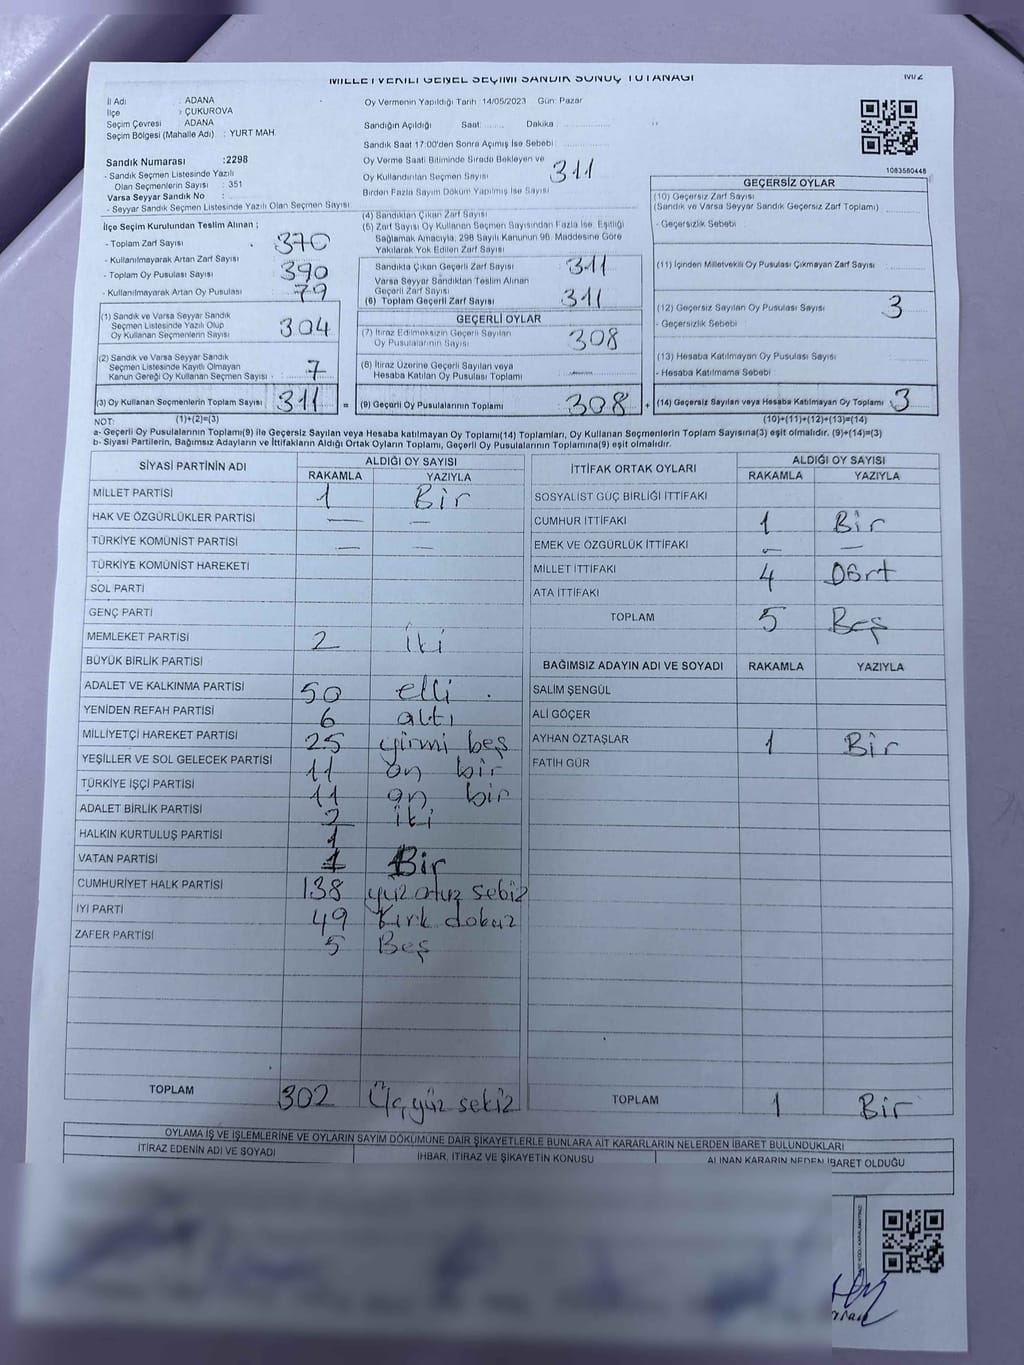 MİLLETVEKİLİ GENEL SEÇİMİ SANDIK SONUÇ TUTANAĞI
İl Adı : ADANA
İlçe : ÇUKUROVA
Seçim Çevresi : ADANA
Seçim Bölgesi (Mahalle Adı) : YURT MAH.
Sandık Numarası :2298
- Sandık Seçmen Listesinde Yazılı
Olan Seçmenlerin Sayısı : 351
Varsa Seyyar Sandık No :
- Seyyar Sandık Seçmen Listesinde Yazılı Olan Seçmen Sayısı
Oy Vermenin Yapıldığı Tarih :14/05/2023 Gün: Pazar
Sandığın Açıldığı Saat: Dakika
Sandık Saat 17:00'den Sonra Açımış İse Sebebi
Oy Verme Saati Bitiminde Sırada Bekleyen ve
Oy Kullandırılan Seçmen Sayısı 311
Birden Fazla Sayım Döküm Yapılmış İse Sayısı
1083580448
İlçe Seçim Kurulundan Teslim Alınan ;
- Toplam Zarf Sayısı 370
- Kullanılmayarak Artan Zarf Sayısı
- Toplam Oy Pusulası Sayısı 390
- Kullanılmayarak Artan Oy Pusulası 79
(1) Sandık ve Varsa Seyyar Sandık
Seçmen Listesinde Yazılı Olup
Oy Kullanan Seçmenlerin Sayısı 304
(2) Sandık ve Varsa Seyyar Sandık
Seçmen Listesinde Kayıtlı Olmayan
Kanun Gereği Oy Kullanan Seçmen Sayısı 7
(3) Oy Kullanan Seçmenlerin Toplam Sayısı 311 =
(4) Sandıktan Çıkan Zarf Sayısı
(5) Zarf Sayısı Oy Kullanan Seçmen Sayısından Fazla İse, Eşitliği
Sağlamak Amacıyla, 298 Sayılı Kanunun 98. Maddesine Göre
Yakılarak Yok Edilen Zarf Sayısı
Sandıkta Çıkan Geçerli Zarf Sayısı 311
Varsa Seyyar Sandıktan Teslim Alınan
Geçerli Zarf Sayısı
(6) Toplam Geçerli Zarf Sayısı 311
GEÇERLİ OYLAR
(7) İtiraz Edilmeksizin Geçerli Sayılan
Oy Pusulalarının Sayısı 308
(8) İtiraz Üzerine Geçerli Sayılan veya
Hesaba Katılan Oy Pusulası Toplamı
(9) Geçerli Oy Pusulalarının Toplamı 308 +
GEÇERSİZ OYLAR
(10) Geçersiz Zarf Sayısı
(Sandık ve Varsa Seyyar Sandık Geçersiz Zarf Toplamı)
- Geçersizlik Sebebi
(11) İçinden Milletvekili Oy Pusulası Çıkmayan Zarf Sayısı
(12) Geçersiz Sayılan Oy Pusulası Sayısı 3
- Geçersizlik Sebebi
(13) Hesaba Katılmayan Oy Pusulası Sayısı
- Hesaba Katılmama Sebebi
(14) Geçersiz Sayılan veya Hesaba Katılmayan Oy Toplamı 3
NOT: (1)+(2)=(3) (10)+(11)+(12)+(13)=(14)
a- Geçerli Oy Pusulalarının Toplamı(9) ile Geçersiz Sayılan veya Hesaba katılmayan Oy Toplamı(14) Toplamları, Oy Kullanan Seçmenlerin Toplam Sayısına(3) eşit olmalıdır. (9)+(14)=(3)
b- Siyasi Partilerin, Bağımsız Adayların ve İttifakların Aldığı Ortak Oyların Toplamı, Geçerli Oy Pusulalarının Toplamına(9) eşit olmalıdır.
SİYASİ PARTİNİN ADI ALDIĞI OY SAYISI
RAKAMLA YAZIYLA
MİLLET PARTİSİ 1 Bir
HAK VE ÖZGÜRLÜKLER PARTİSİ — —
TÜRKİYE KOMÜNİST PARTİSİ — —
TÜRKİYE KOMÜNİST HAREKETİ
SOL PARTİ
GENÇ PARTİ
MEMLEKET PARTİSİ 2 iki
BÜYÜK BİRLİK PARTİSİ
ADALET VE KALKINMA PARTİSİ 50 elli
YENİDEN REFAH PARTİSİ 6 altı
MİLLİYETÇİ HAREKET PARTİSİ 25 yirmi beş
YEŞİLLER VE SOL GELECEK PARTİSİ 11 on bir
TÜRKİYE İŞÇİ PARTİSİ 11 on bir
ADALET BİRLİK PARTİSİ 2 iki
HALKIN KURTULUŞ PARTİSİ 1
VATAN PARTİSİ 1 Bir
CUMHURİYET HALK PARTİSİ 138 yüz otuz sekiz
İYİ PARTİ 49 Kırk dokuz
ZAFER PARTİSİ 5 Beş
TOPLAM 302 Üçyüz sekiz
İTTİFAK ORTAK OYLARI ALDIĞI OY SAYISI
RAKAMLA YAZIYLA
SOSYALİST GÜÇ BİRLİĞİ İTTİFAKI
CUMHUR İTTİFAKI 1 Bir
EMEK VE ÖZGÜRLÜK İTTİFAKI — —
MİLLET İTTİFAKI 4 Dört
ATA İTTİFAKI
TOPLAM 5 Beş
BAĞIMSIZ ADAYIN ADI VE SOYADI RAKAMLA YAZIYLA
SALİM ŞENGÜL
ALİ GÖÇER
AYHAN ÖZTAŞLAR 1 Bir
FATİH GÜR
TOPLAM 1 Bir
OYLAMA İŞ VE İŞLEMLERİNE VE OYLARIN SAYIM DÖKÜMÜNE DAİR ŞİKAYETLERLE BUNLARA AİT KARARLARIN NELERDEN İBARET BULUNDUKLARI
İTİRAZ EDENİN ADI VE SOYADI İHBAR, İTİRAZ VE ŞİKAYETİN KONUSU ALINAN KARARIN NEDEN İBARET OLDUĞU